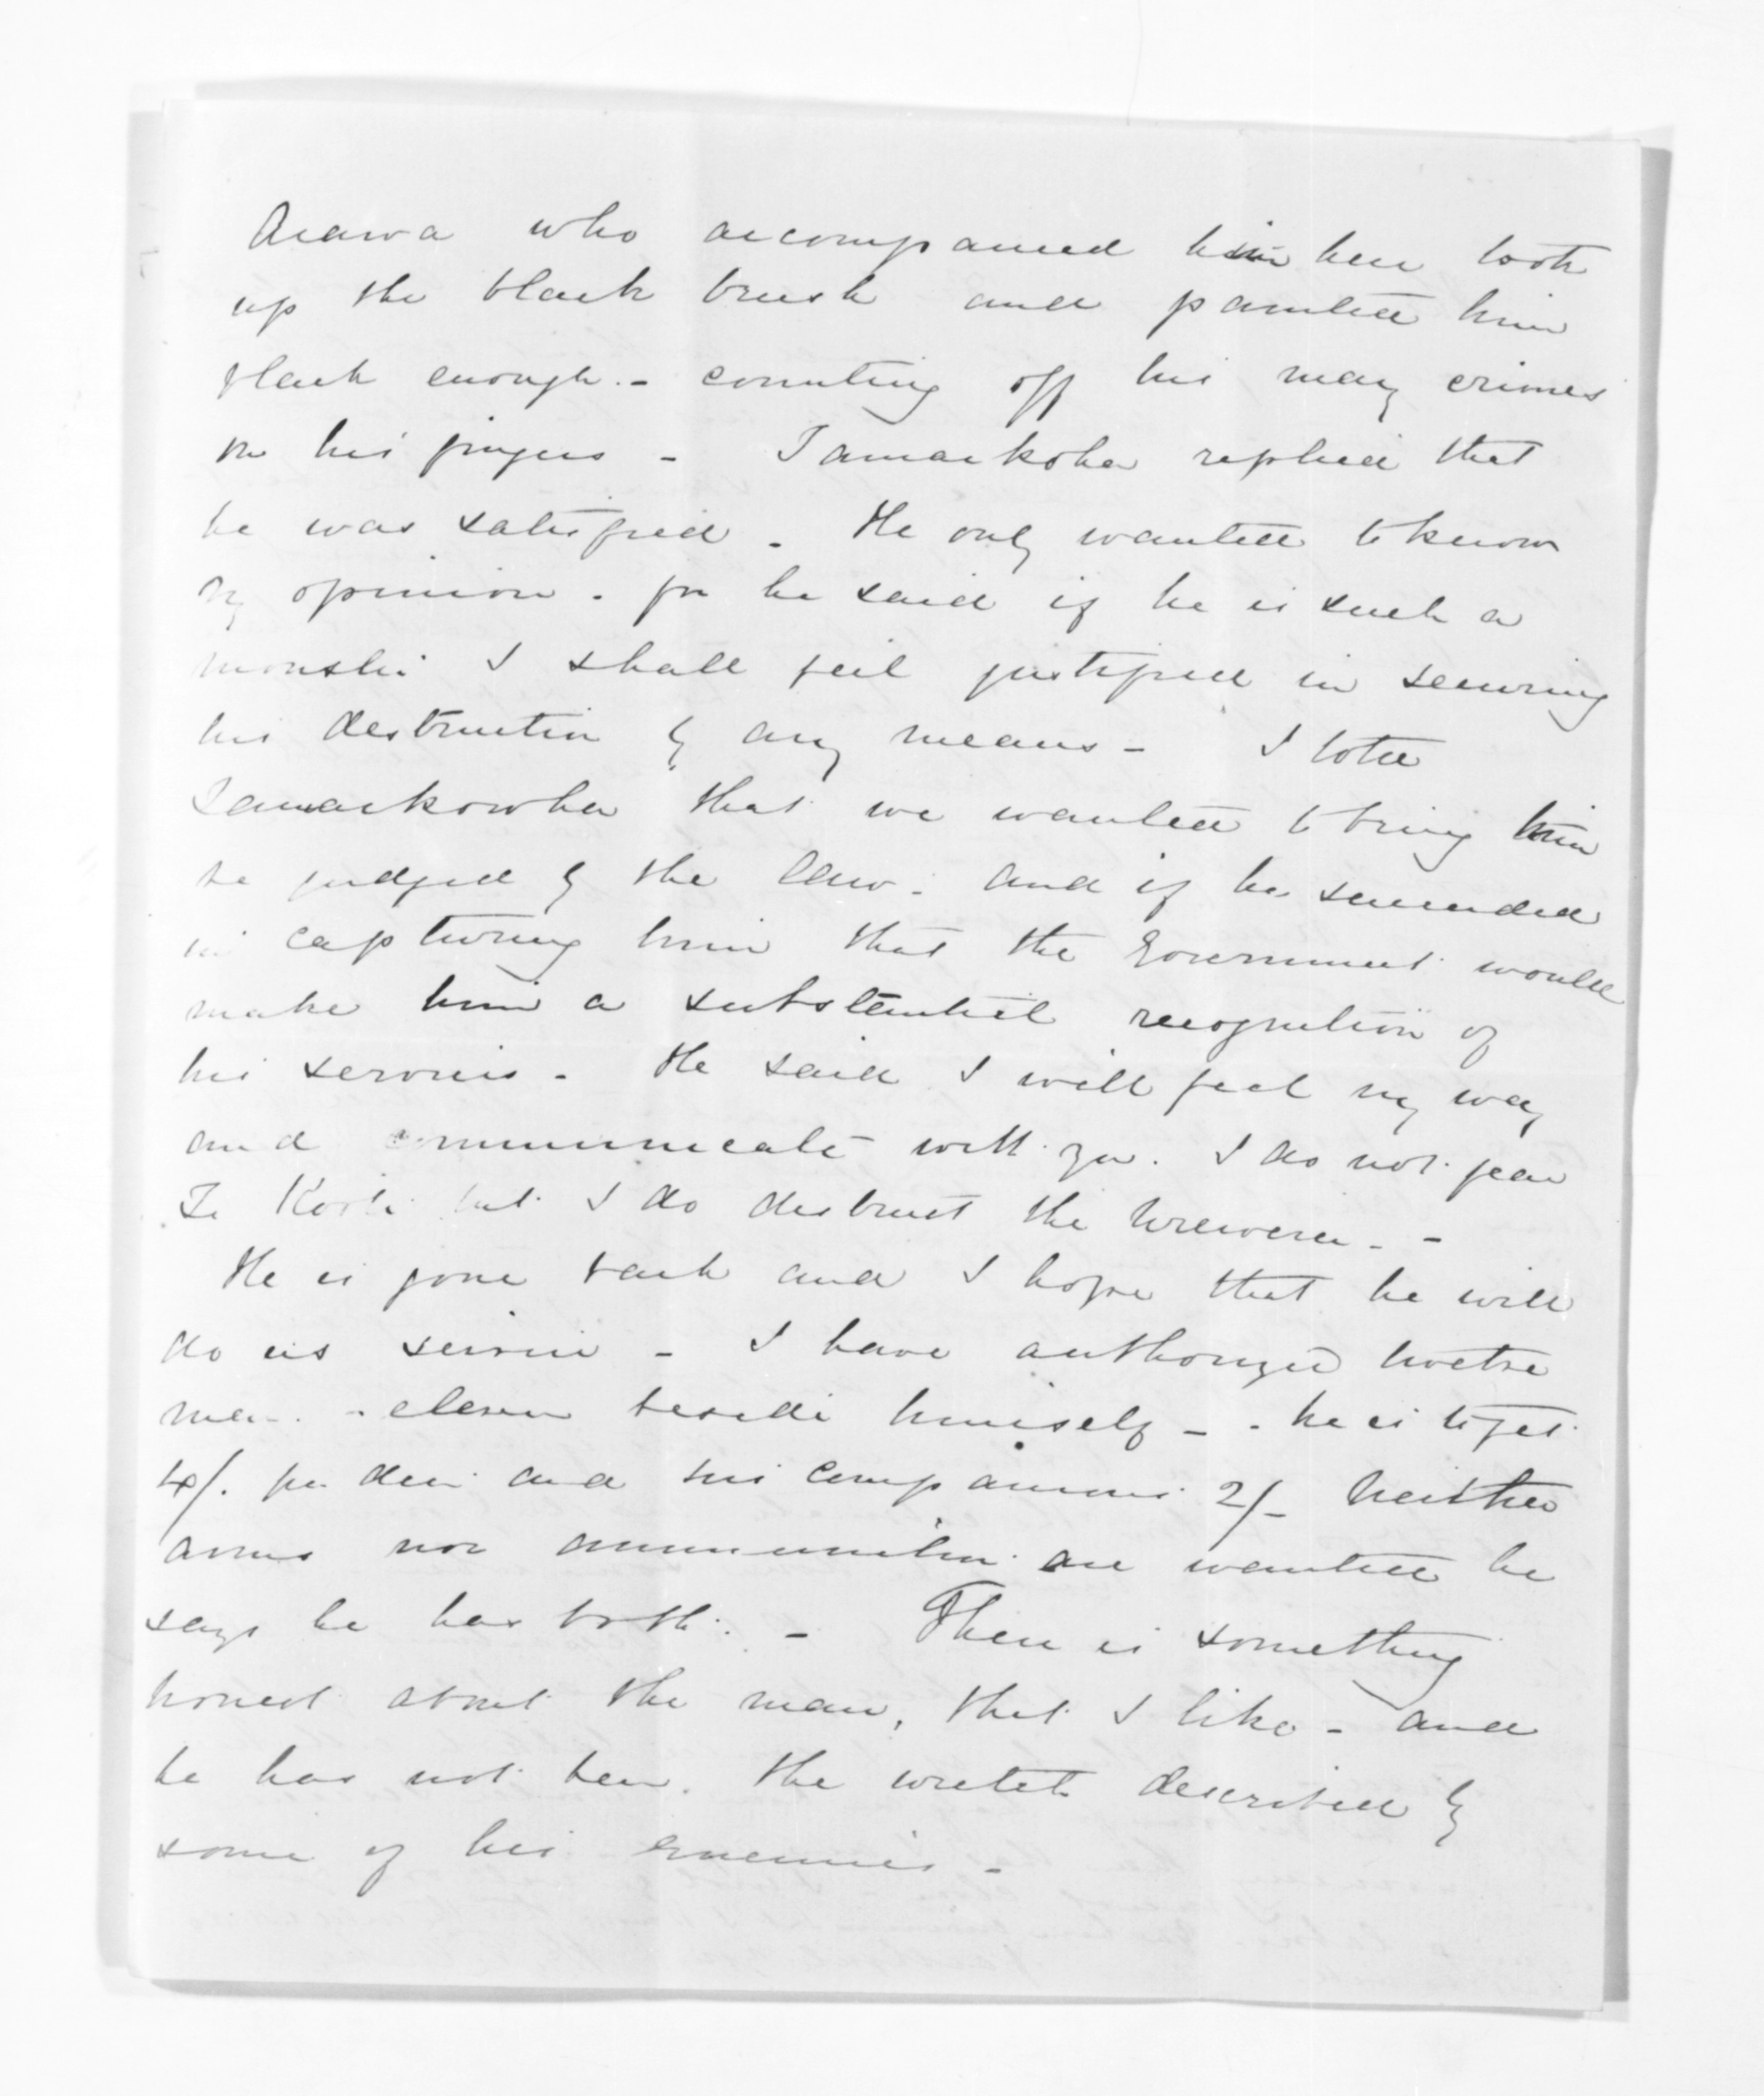 Arawa who accompanied him here took
up the black brush and painted him
black enough. - counting off his many crimes
on his fingers - Tamaikoha replied that
he was satisfied - He only wanted to know
my opinion - for he said if he is such a
monster I shall feel justified in securing
his destruction by any means - I told
Tamaikowha that we wanted to bring him
to be judged by the law - and if he succeeded
in capturing him that the Government would
make him a substantial recognition of
his services - He said I will feel my way
and communicate with you. I do not fear
Te Kooti but I do distrust the Urewera - -
He is gone back and I hope that he will
do us service - I have authorized twelve
men - eleven beside himself - - he is to get
4/. per diem and his companions 2/- Neither
arms nor ammunition are wanted he
says he has both. - There is something
honest about the man, that I like - and
he has not been the wretch described by
some of his enemies -